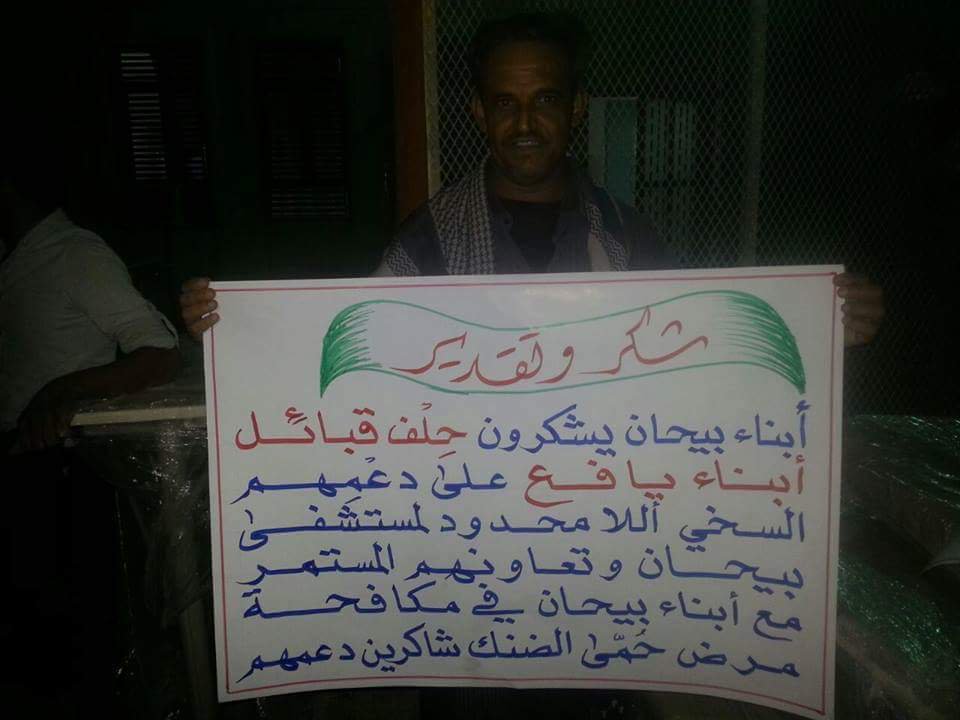 شكر وتقدير
أبناء بيحان يشكرون حِلْف قبائل
أبناء يافع على دعْمِهم
السخي أللا محدود لمستشفى
بيحان وتعاونهم المستمر
مع أبناء بيحان في مكافحة
مرض حُمَّى الضنك شاكرين دعميهم